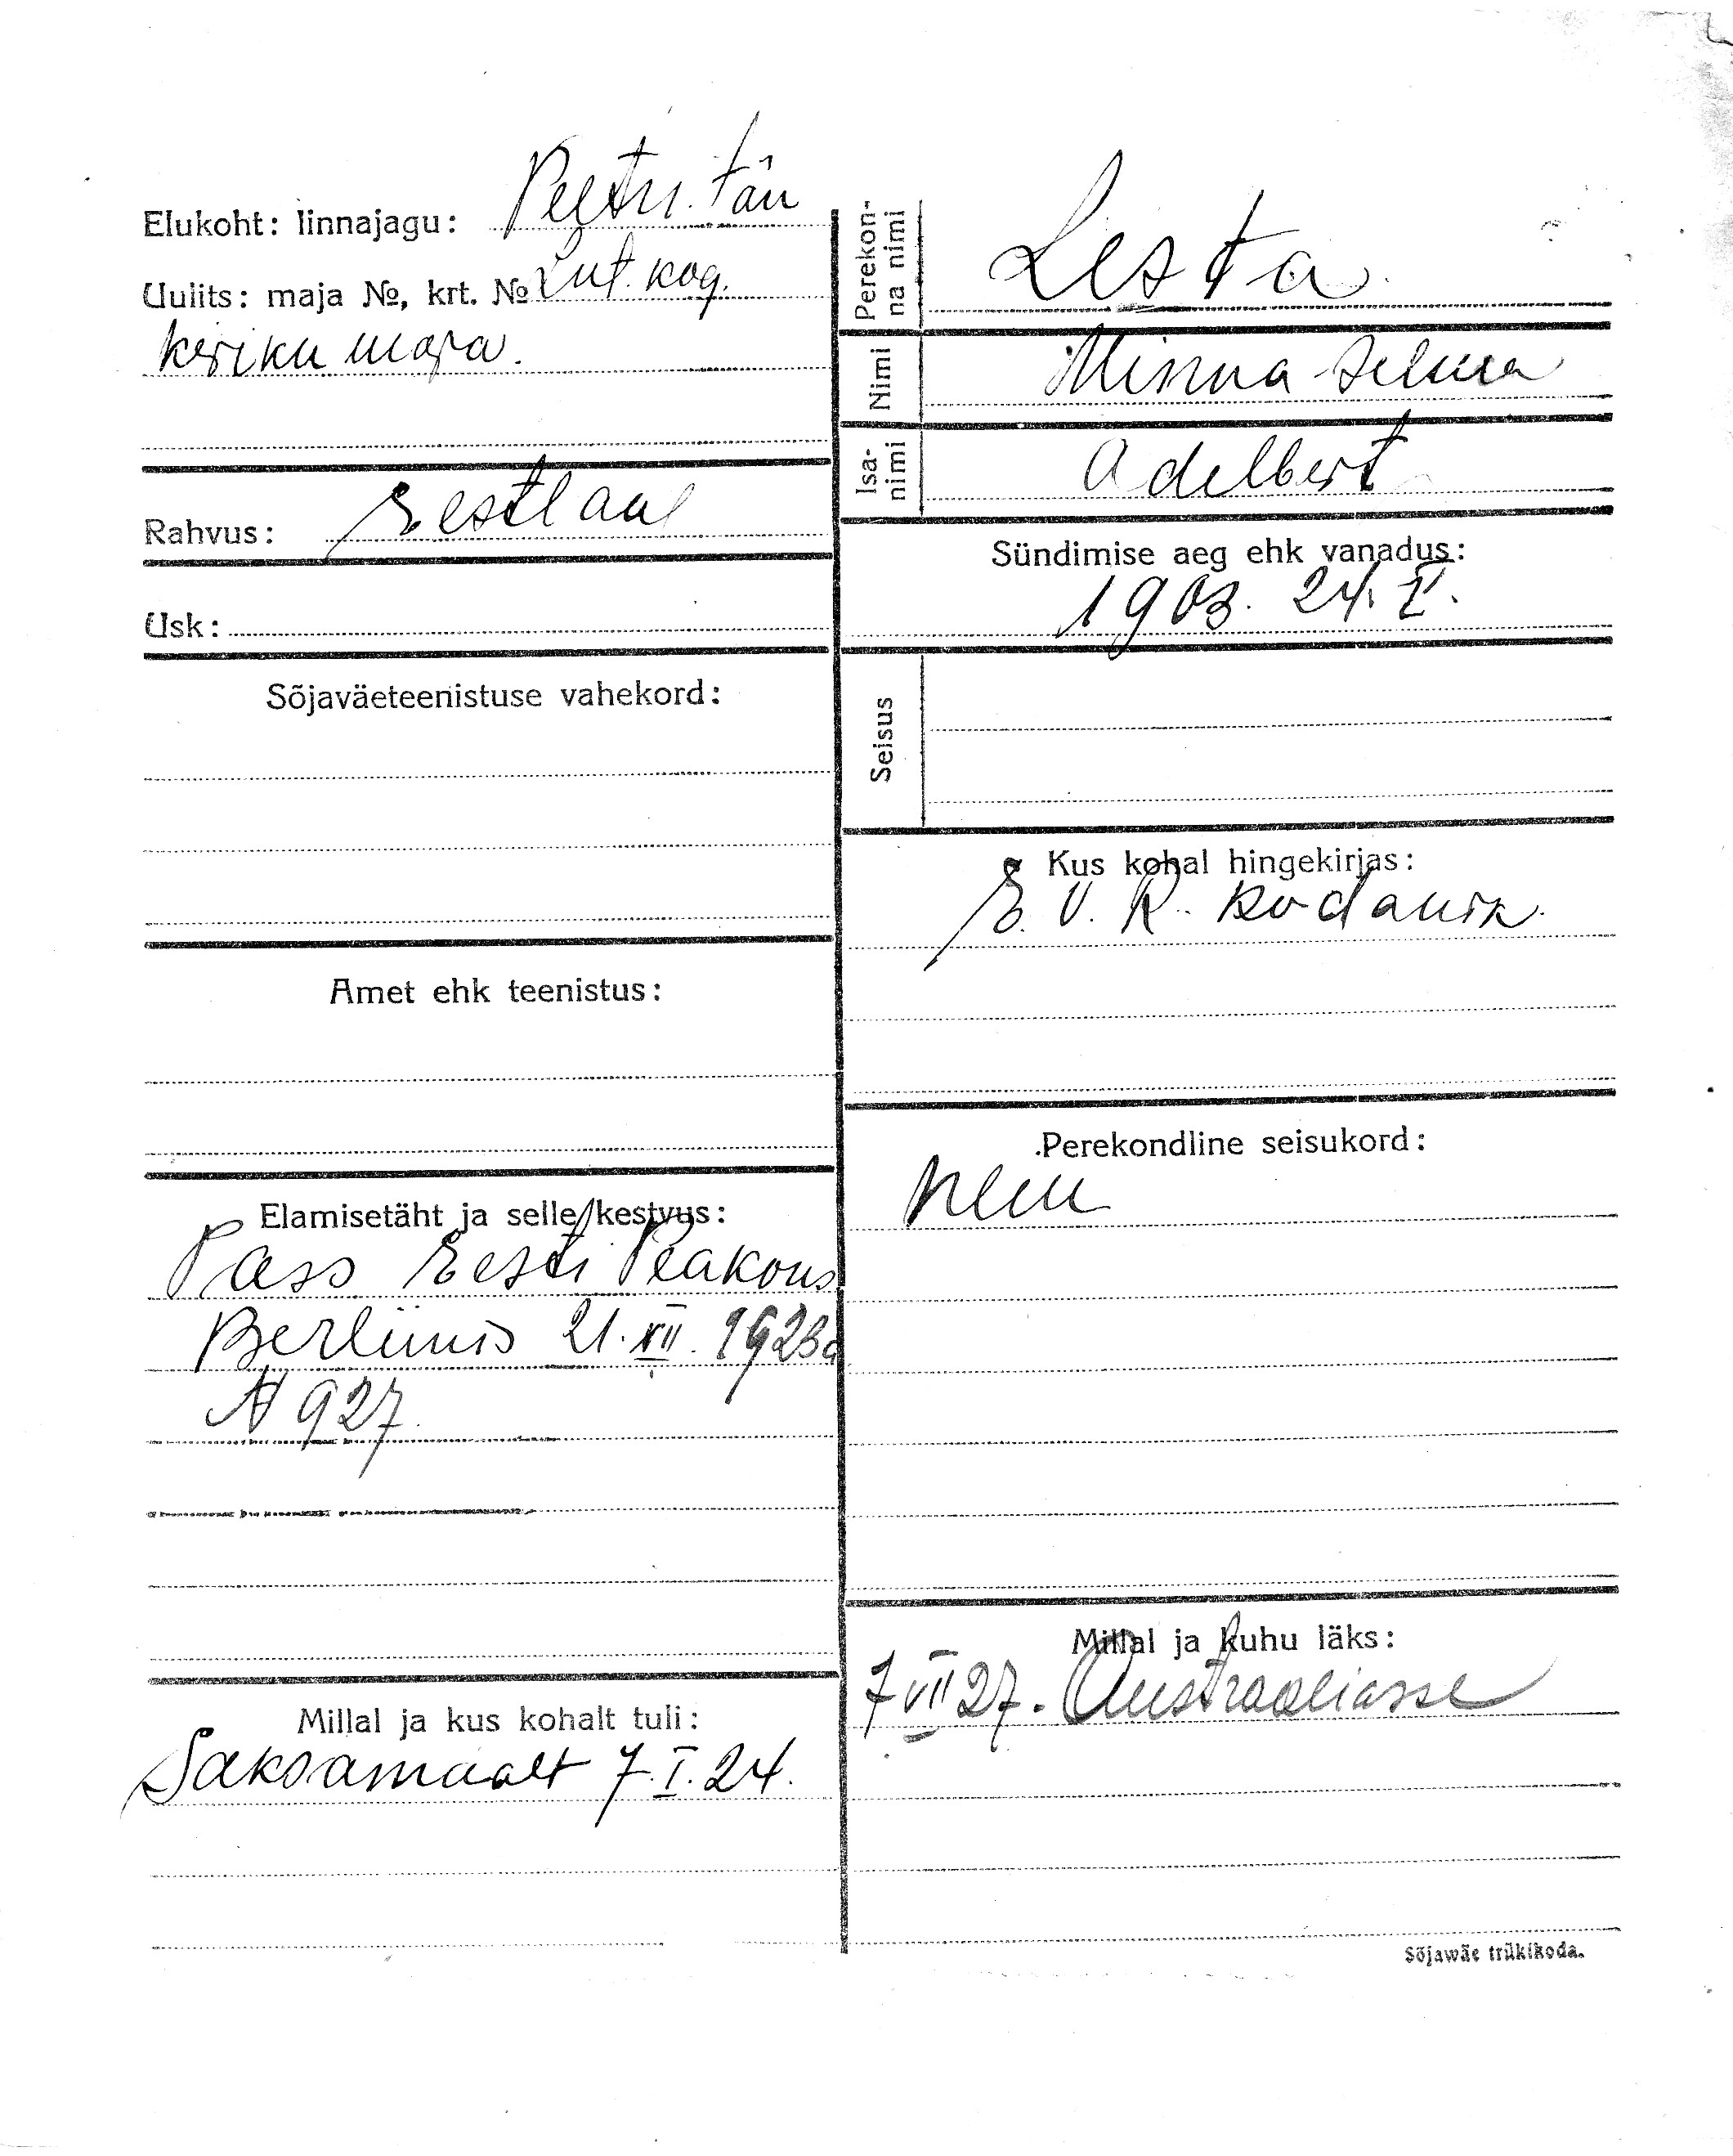 Elukoht: linnajagu: Peetri tän
Uulits: maja №, krt. № Lut. kog.
kiriku maja.
Rahvus: Eestlane
Usk:
Sõjaväeteenistuse vahekord:
Amet ehk teenistus:
Elamisetäht ja selle kestvus:
Pass Eesti Peakons
Berliinis 21. XII. 1923a
N 927.
Millal ja kus kohalt tuli:
Saksamaalt 7. I. 24.
Perekon-
na nimi
Lesta.
Nimi
Minna-Selma
Isa-
nimi
Adelbert
Sündimise aeg ehk vanadus:
1903. 24. V.
Seisus
Kus kohal hingekirjas:
E. V. R. kodanik.
Perekondline seisukord:
Millal ja kuhu läks:
7 VII 27. Austraaliasse
Sõjawäe trükikoda.